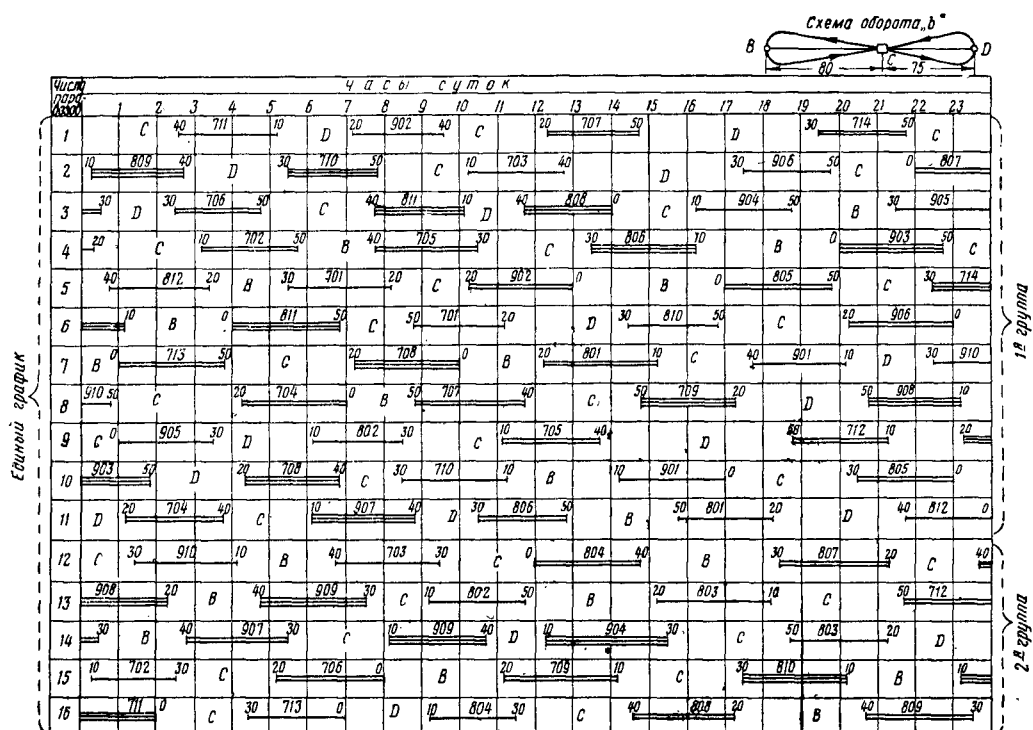 Схема оборота „b"
B D
C
80 75
Числа паро- возов
Часы суток
1 2 3 4 5 6 7 8 9 10 11 12 13 14 15 16 17 18 19 20 21 22 23
1 C 40 711 10 D 20 902 40 C 20 707 50 D 30 714 50 C
2 10 809 40 D 30 770 50 C 10 703 40 D 30 906 50 C 0 807
3 30 D 30 706 50 C 40 811 10 D 40 808 0 C 10 904 50 B 30 905
4 20 C 10 702 50 B 40 705 30 C 30 806 10 B 0 903 50 C
5 40 812 20 B 30 701 20 C 20 902 0 B 0 805 50 C 30 714
6 10 B 0 811 50 C 50 701 20 D 30 810 50 C 20 906 0
7 B 0 713 50 C 20 708 0 B 20 801 10 C 40 901 10 D 30 910
8 910 50 C 20 704 0 B 50 707 40 C 50 709 20 D 50 908 10
9 C 0 905 30 D 10 802 30 C 10 705 40 D 712 10 20
10 903 50 D 20 708 40 C 30 710 10 B 10 901 0 C 30 805 0
11 D 20 704 40 C 10 907 40 D 30 806 50 B 50 801 20 D 40 812 0
12 C 30 910 10 B 40 703 30 C 0 804 40 B 30 807 20 C 40
13 908 20 B 40 909 30 C 10 802 50 B 20 803 10 C 50 712
14 30 B 40 907 30 C 10 909 40 D 10 904 30 C 50 803 20 D
15 10 702 30 C 20 706 0 B 20 709 10 C 30 810 10 B 10
16 711 0 C 30 713 0 D 10 804 30 C 40 808 20 B 40 809 30
Единый график
1я группа
2я группа